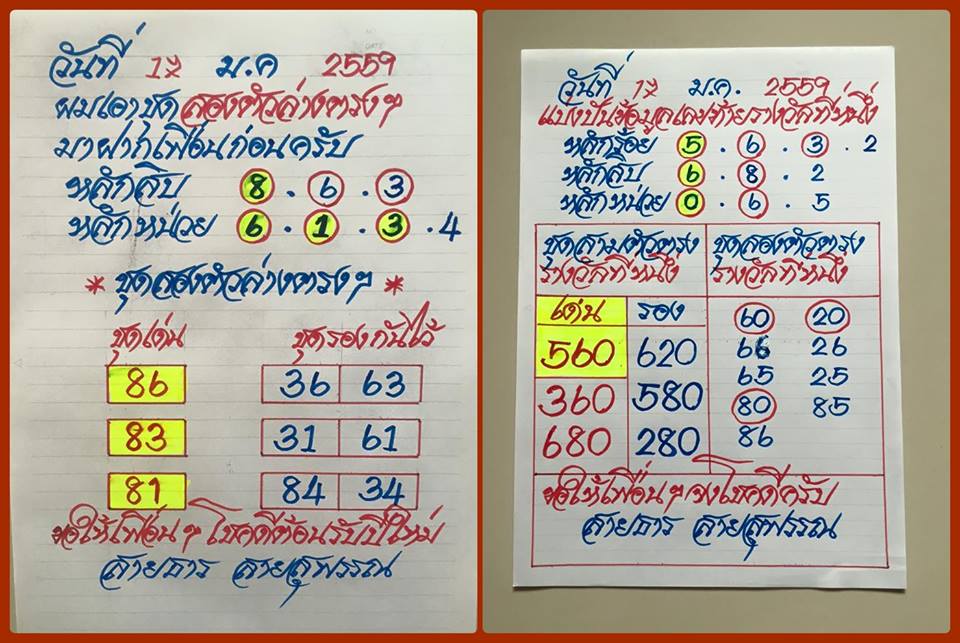 วันที่ 17 ม.ค 2559
ผมเอาชุดสองตัวล่างตรงๆ
มาฝากเพื่อนก่อนครับ
หลักสิบ 8 . 6 . 3
หลักหน่วย 6 . 1 . 3 . 4
* ชุดสองตัวล่างตรงๆ *
ชุดเด่น ชุดรองกันไว้
86 36 63
83 31 61
81 84 34
ขอให้เพื่อนๆ โชคดีต้อนรับปีใหม่
สายธาร สายสุพรรณ
วันที่ 17 ม.ค. 2559
แบ่งปันข้อมูลเลขท้ายรางวัลที่หนึ่ง
หลักร้อย 5 . 6 . 3 . 2
หลักสิบ 6 . 8 . 2
หลักหน่วย 0 . 6 . 5
ชุดสามตัวตรง ชุดสองตัวตรง
รางวัลที่หนึ่ง รางวัลที่หนึ่ง
เด่น รอง
560 620
360 580
680 280
60 20
66 26
65 25
80 85
86
ขอให้เพื่อนๆจงโชคดีครับ
สายธาร สายสุพรรณ